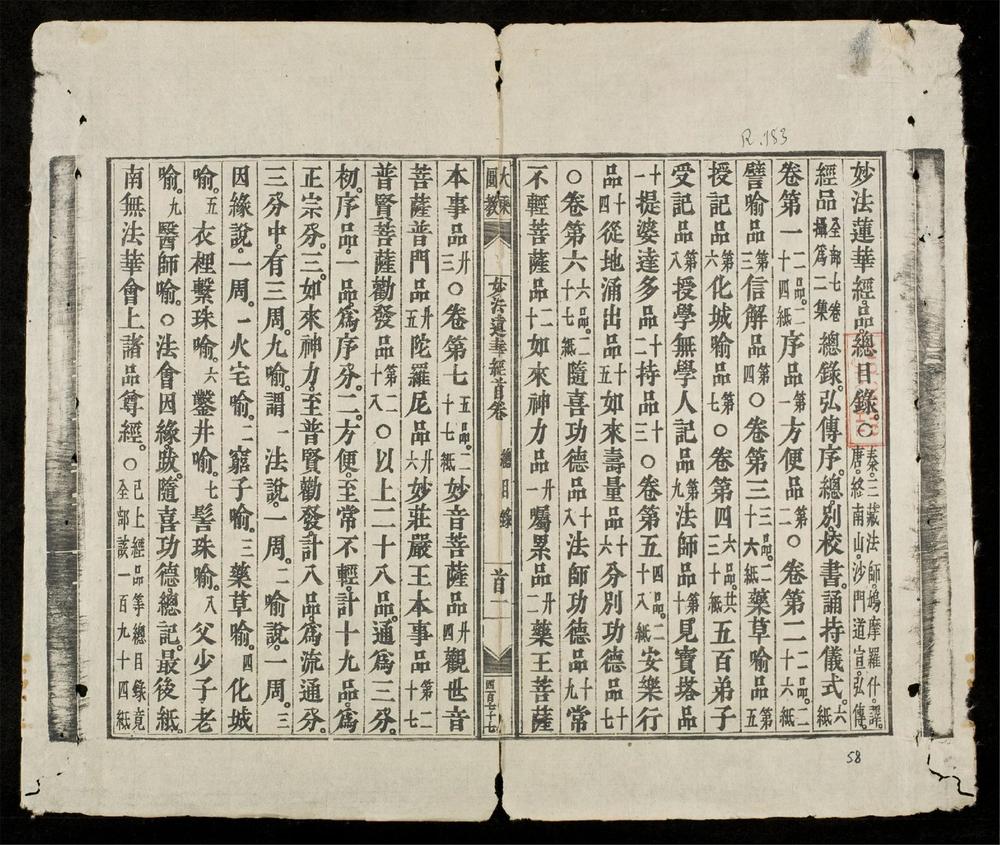 妙法蓮華經品。總目錄。○秦。三藏法師。鳩摩羅什。譯。唐。終南山。沙門道宣。弘傳。
經品全部七卷攝爲二集總錄。弘傳序。總。別。校。書。誦持儀式。六紙
卷第一二品。二十四紙序品第一方便品第二○卷第二二品。二十六紙
譬喻品第三信解品第四○卷第三三品。二十六紙藥草喻品第五
授記品第六化城喻品第七○卷第四六品。共三十紙五百弟子
受記品第八授學無學人記品第九法師品第十見寶塔品
十一提婆達多品十二持品十三○卷第五四品。二十八紙安樂行
品十四從地涌出品十五如來壽量品十六分別功德品十七
○卷第六六品。二十七紙隨喜功德品十八法師功德品十九常
不輕菩薩品二十如來神力品廿一囑累品廿二藥王菩薩
大乘圓教
妙法蓮華經首卷 總目錄 首二 四百七十七
本事品廿三○卷第七五品。二十七紙妙音菩薩品廿四觀世音
菩薩普門品廿五陀羅尼品廿六妙莊嚴王本事品第二十七
普賢菩薩勸發品第二十八○以上二十八品。通爲三分。
初。序品。一品。爲序分。二。方便。至常不輕。計十九品。爲
正宗分。三。如來神力。至普賢勸發。計八品。爲流通分。
三分中。有三周。九喻。謂一法說。一周。二喻說。一周。三
因緣說。一周。一火宅喻。二窮子喻。三藥草喻。四化城
喻。五衣裡繫珠喻。六鑿井喻。七髻珠喻。八父少子老
喻。九醫師喻。○法會因緣跋。隨喜功德。總記。最後紙。
南無法華會上諸品尊經。○已上經品等總目錄竟全部該一百九十四紙
R.183
58